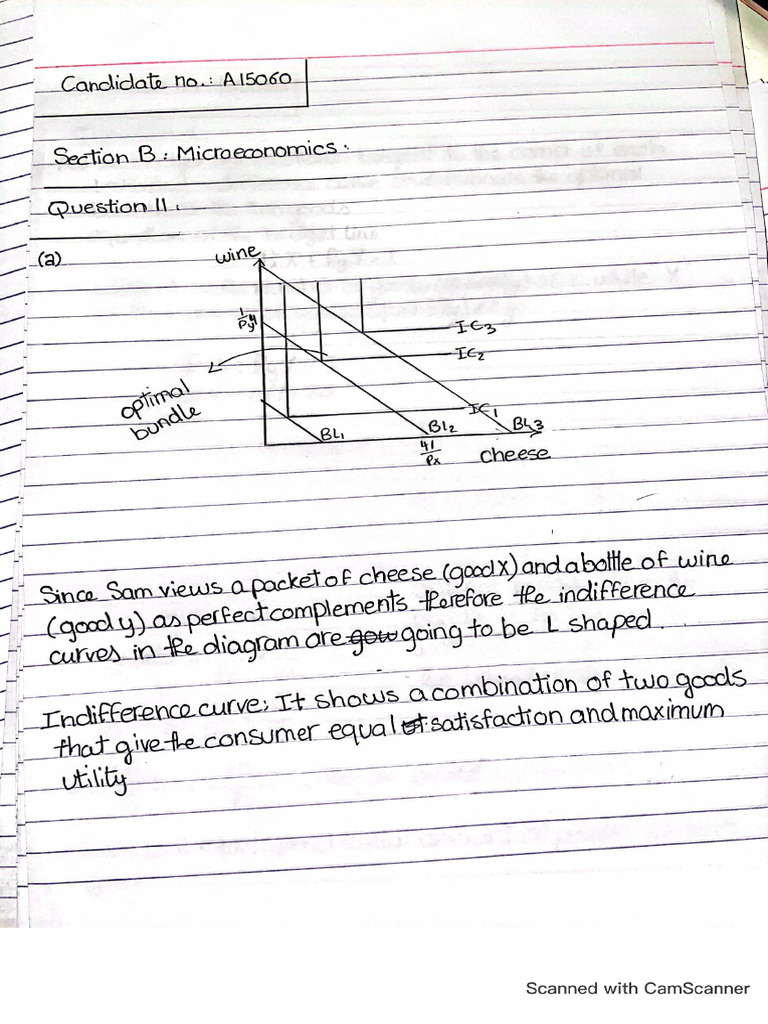 Candidate no.: A15060
Section B: Microeconomics.
Question 11.
(a)
wine
IC3
IC2
optimal
bundle
IC1
BL1
BL2
BL3
Px
cheese
Since Sam views a packet of cheese (good X) and a bottle of wine
(good y) as perfect complements therefore the indifference
curves in the diagram are going to be L shaped.
Indifference curve: It shows a combination of two goods
that give the consumer equal satisfaction and maximum
utility
Scanned with CamScanner